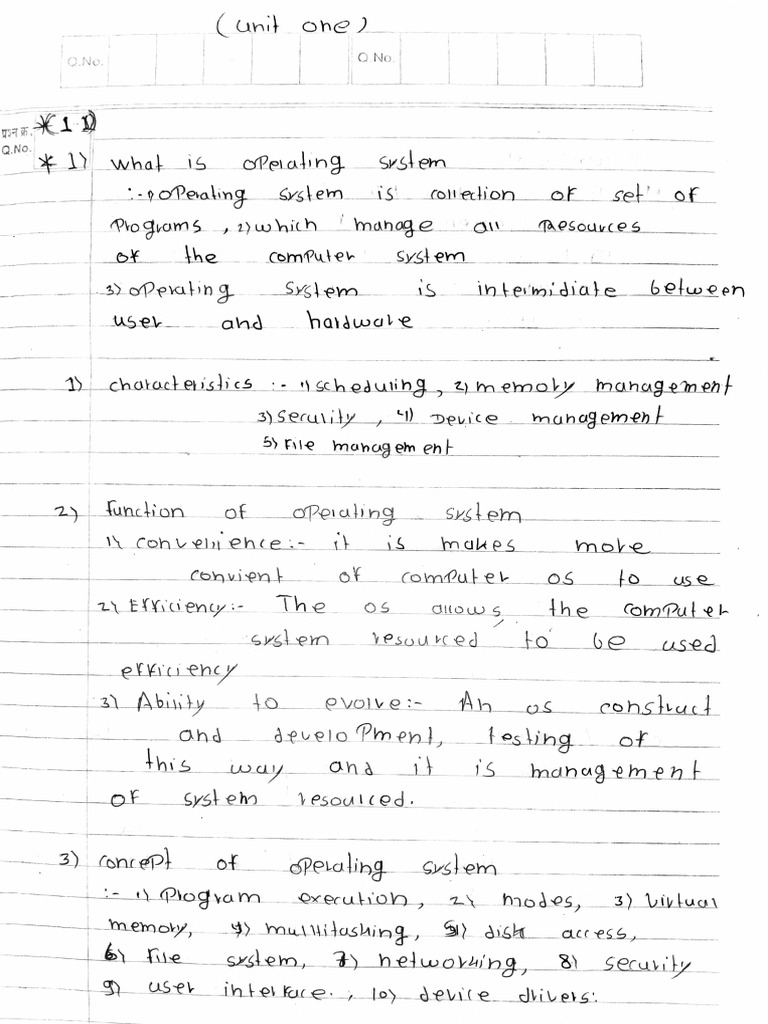 (unit one)
Q.No. Q.No.
प्रश्न क्र. *(1.1)
Q.No.
* 1) what is operating system
:-1) operating system is collection of set of
programs, 2) which manage all Resources
of the computer system
3) operating system is intermidiate between
user and hardware
1) characteristics :- 1) scheduling, 2) memory management
3) security, 4) Device management
5) File management
2) function of operating system
1) convenience:- it is makes more
convient of computer os to use
2) Efficiency:- The os allows the computer
system resourced to be used
efficiency
3) Ability to evolve:- An os construct
and development, testing of
this way and it is management
of system resourced.
3) concept of operating system
:- 1) program execution, 2) modes, 3) virtual
memory, 4) multitasking, 5) disk access,
6) file system, 7) networking, 8) security
9) user interface., 10) device drivers: